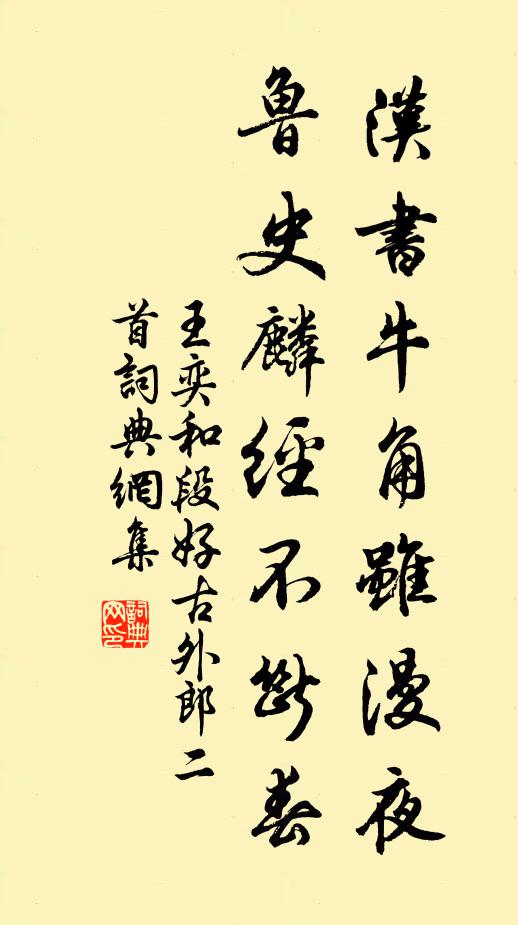 漢書牛角雖漫夜
魯史麟經不斷春
王奕和段好古外郎二
首詞典網集
詞典
网印